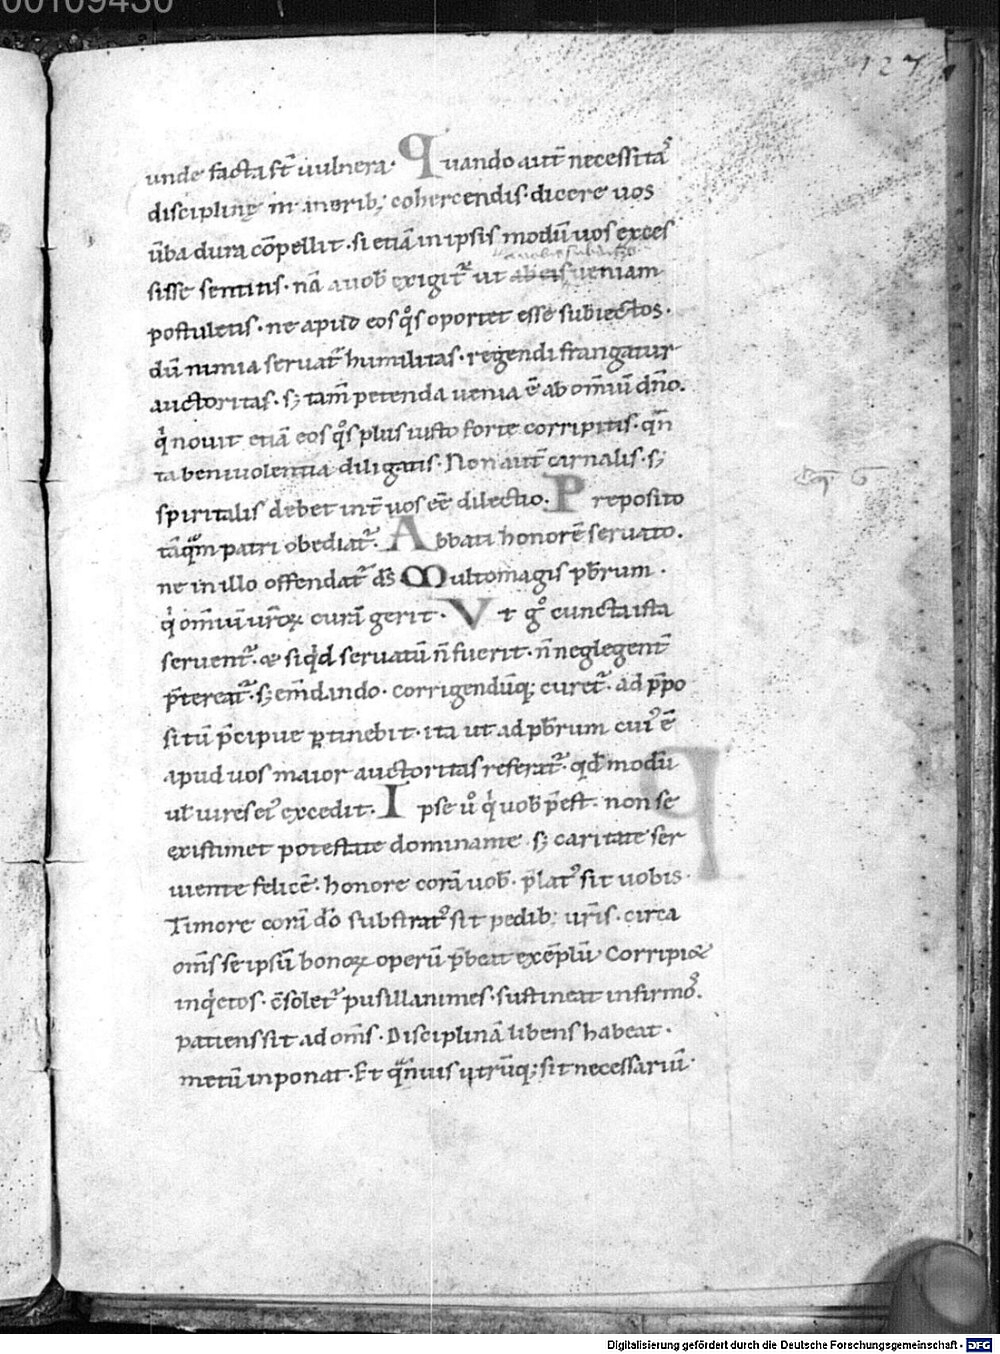 00109430
127
unde facta st̄ uulnera. Quando aut̄ necessitaꝰ
disciplinę in morib; cohercendis. dicere uos
ūba dura cōpellit. si etiā in ipsis modū uos exces
sisse sentitis. nā a uob̄ exigit᷑ ut ab eis ueniam
postuletis. ne apud eos qͦs oportet esse subiectos.
dū nimia seruat᷑ humilitas. regendi frangatur
auctoritas. sꝫ tam̄ petenda uenia ē ab omiū dn̄o.
qͥ nouit etiā eos qͦs plus iusto forte corripitis. qn̄
ta beniuolentia diligatis. Non aut̄ carnalis. sꝫ
spiritalis debet int̄ uos eē dilectio. Preposito
tāqͣm patri obediat᷑. Abbati honorē seruato.
ne in illo offendat᷑ ds̄ Multomagis pb̄rum.
qͥ omiū ur̄oꝝ curā gerit. Ut gͦ cuncta ista
seruent᷑. & siqͥd seruatū n̄ fuerit. n̄ neglegent̄
p̄tereat᷑. sꝫ em̄dando. corrigendūq; curet᷑. ad p̄po
situ p̄cipue ꝑtinebit. ita ut ad pb̄rum cuiꝰ ē
apud uos maior auctoritas referat᷑. qd̄ modū
ul̄ uires eiꝰ excedit. Ipse uͦ qͥ uob̄ p̄est. non se
existimet potestate dominante sꝫ caritate ser
uiente felicē. honore corā uob̄. p̄latꝰ sit uobis.
Timore corā dō substratꝰ sit pedib; ur̄is. circa
om̄s se ipsū bonoꝝ operū p̄beat exēplū Corripi&
inqͥetos. c̄solet᷑ pusillanimes. sustineat infirmoꝰ.
patiens sit ad om̄s. Disciplinā libens habeat.
metū inponat. Et qͣmuis utrūq; sit necessariū
Digitalisierung gefördert durch die Deutsche Forschungsgemeinschaft - DFG